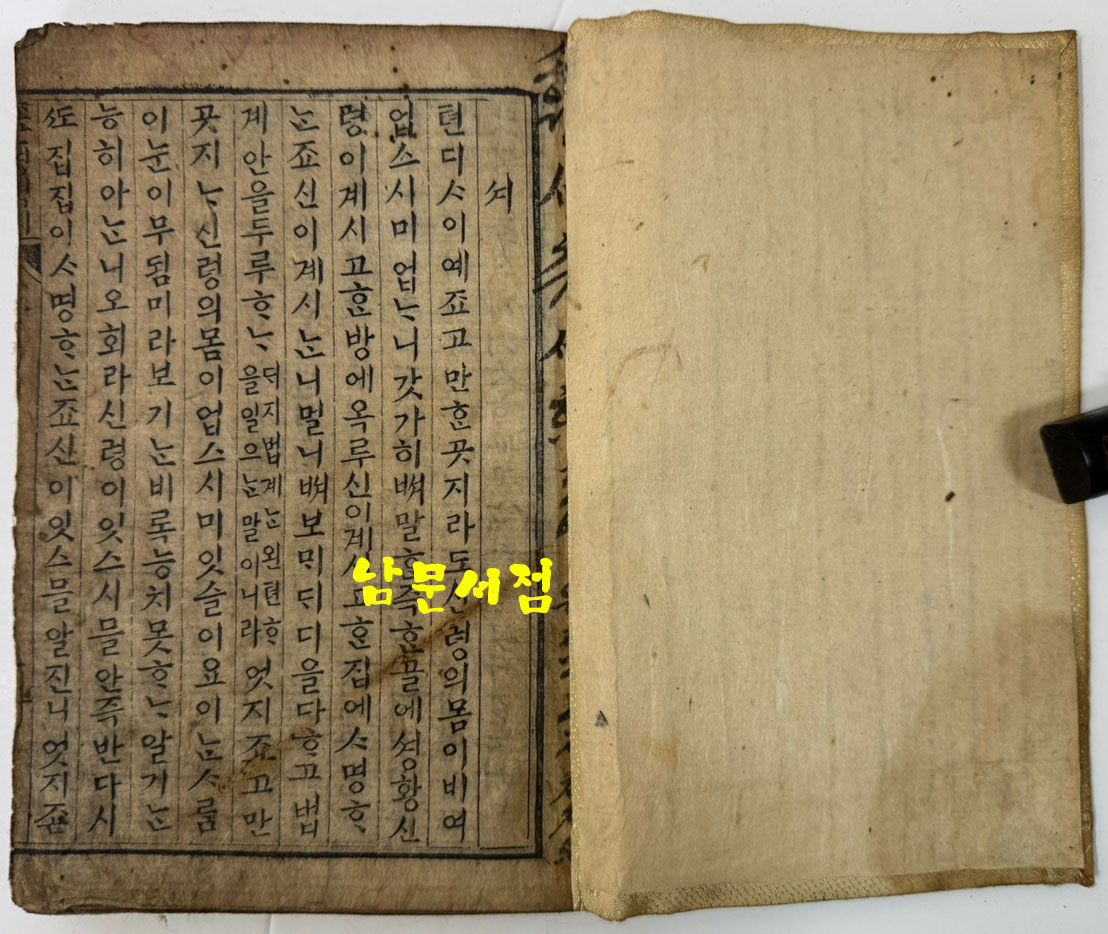 셔
텬디ᄉᆞ이예죠고만ᄒᆞᆫ곳지라도신령의몸이비여
업스시미업ᄂᆞ니갓가히ᄲᅧ말ᄒᆞ즉ᄒᆞᆫ믈에셩황신
령이계시고ᄒᆞᆫ방에옥루신이계시고ᄒᆞᆫ집에ᄉᆞ명ᄒᆞ
ᄂᆞᆫ죠신이계시ᄂᆞᆫ니멀니ᄲᅧ보ᄆᆡ디을다ᄒᆞ고법
계안을두루ᄒᆞᄂᆞ
덕지법계ᄂᆞᆫ왼텬ᄒᆞ
을일으ᄂᆞᆫ말이니라
엇지죠고만
곳지ᄂᆞ신령의몸이업스시미잇슬이요이ᄂᆞᆫᄉᆞ룸
이눈이무됨미라보기ᄂᆞᆫ비록능치못ᄒᆞᄂᆞ알기ᄂᆞᆫ
능히아ᄂᆞᆫ니오회라신령이잇스시믈안즉반다시
ᄯᅩ집집이ᄉᆞ명ᄒᆞᄂᆞᆫ죠신이잇스믈알진니엇지죤
남문서점